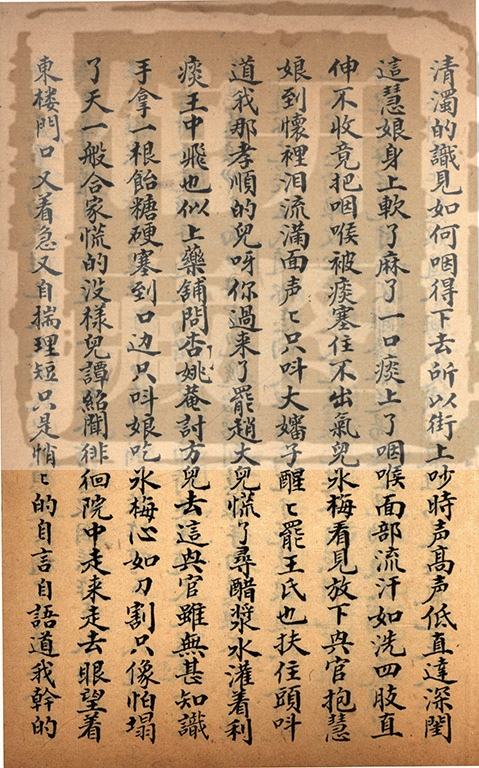 清濁的識見如何咽得下去所以街上吵時声髙声低直達深閨
這慧娘身上軟了麻了一口痰上了咽喉面部流汗如洗四肢直
伸不收竟把咽喉被痰塞住不出氣兒氷梅看見放下㒷官抱慧
娘到懷裡泪流滿面声〻只呌大嬸子醒〻罷王氏也扶住頭呌
道我那孝順的兒呀你過来了罷趙大兒慌了尋醋漿水灌着利
痰王中飛也似上藥舖問杏姚菴討方兒去這㒷官雖無甚知識
手拿一根飴糖硬塞到口边只呌娘吃氷梅心如刀割只像怕塌
了天一般合家慌的没樣兒譚紹聞徘徊院中走来走去眼望着
東楼門口又着急又自揣理短只是悄〻的自言自語道我幹的